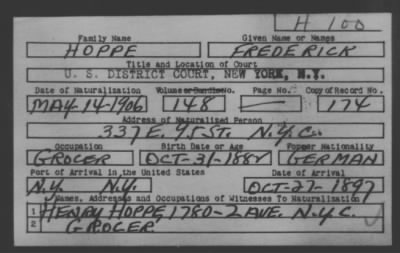 H 100
Family Name Given Name or Names
HOPPE FREDERICK
Title and Location of Court
U. S. DISTRICT COURT, NEW YORK, N.Y.
Date of Naturalization Volume or Bundle No. Page No. Copy of Record No.
MAY-14-1906 148 — 174
Address of Naturalized Person
337 E. 95 ST. N.Y.C.
Occupation Birth Date or Age Former Nationality
GROCER OCT-31-1882 GERMAN
Port of Arrival in the United States Date of Arrival
N.Y. N.Y. OCT-27-1897
Names, Addresses and Occupations of Witnesses To Naturalization
1 HENRY HOPPE, 1780-2 AVE. N.Y.C.
2 GROCER